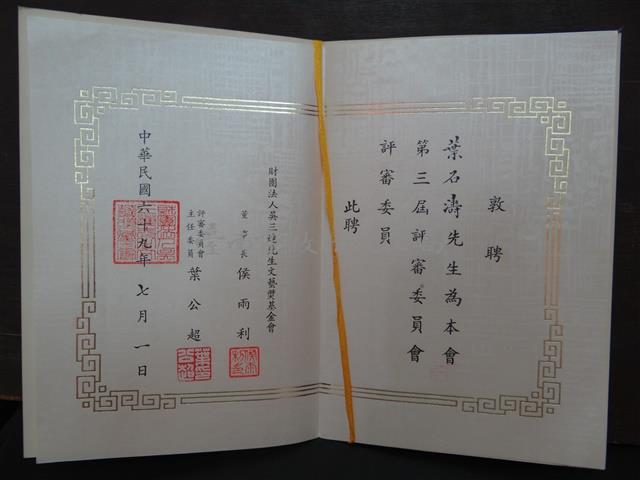 敦聘
葉石濤先生為本會
第三屆評審委員會
評審委員
此聘
財團法人吳三連先生文藝獎基金會
董事長 侯雨利
評審委員會
主任委員 葉公超
中華民國六十九年七月一日